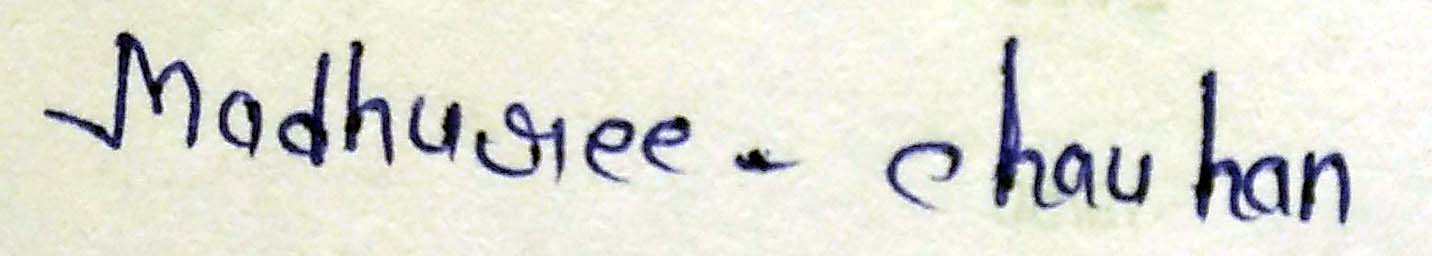 Madhusree - chauhan